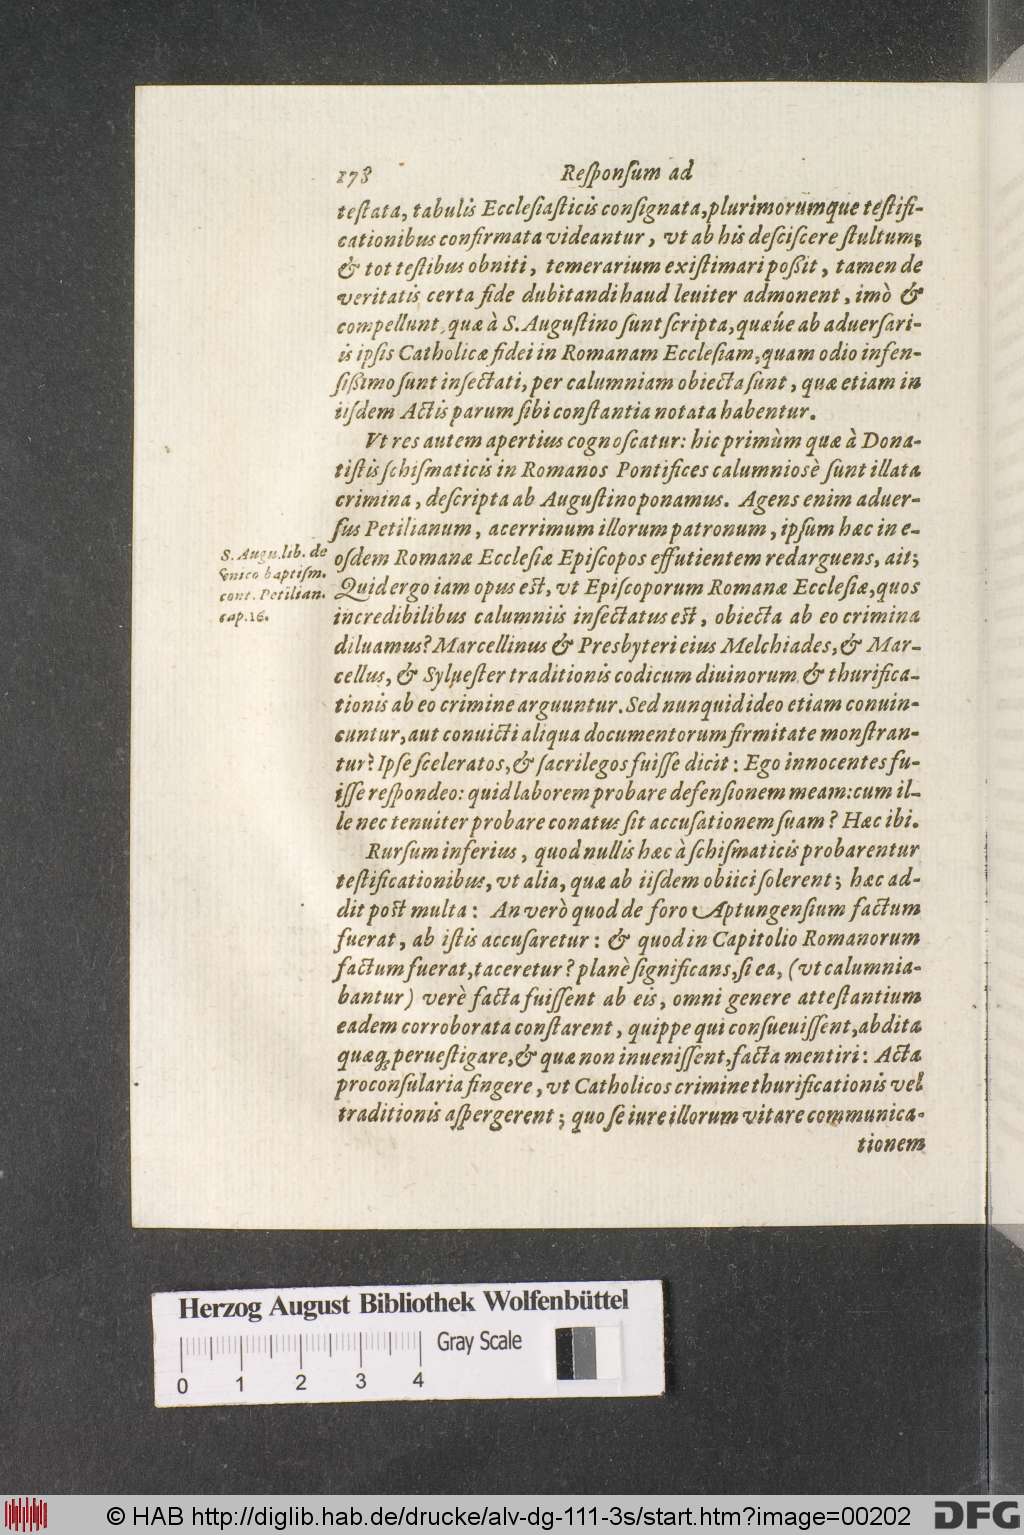 178 Reſponſum ad
teſtata, tabulis Eccleſiaſticis conſignata, plurimorumque teſtifi-
cationibus confirmata videantur, vt ab his deſciſcere ſtultum;
& tot teſtibus obniti, temerarium exiſtimari poßit, tamen de
veritatis certa fide dubitandi haud leuiter admonent, imò &
compellunt, quæ à S. Auguſtino ſunt ſcripta, quæúe ab aduerſari-
is ipſis Catholicæ fidei in Romanam Eccleſiam, quam odio infen-
ſißimo ſunt inſectati, per calumniam obiecta ſunt, quæ etiam in
iiſdem Actis parum ſibi conſtantia notata habentur.
Vt res autem apertius cognoſcatur: hic primùm quæ à Dona-
tiſtis ſchiſmaticis in Romanos Pontifices calumnioſè ſunt illata
crimina, deſcripta ab Auguſtino ponamus. Agens enim aduer-
ſus Petilianum, acerrimum illorum patronum, ipſum hæc in e-
oſdem Romanæ Eccleſiæ Epiſcopos effutientem redarguens, ait;
S. Augu. lib. de
vnico baptiſm.
cont. Petilian.
cap. 16.
Quid ergo iam opus eſt, vt Epiſcoporum Romanæ Eccleſiæ, quos
incredibilibus calumniis inſectatus eſt, obiecta ab eo crimina
diluamus? Marcellinus & Presbyteri eius Melchiades, & Mar-
cellus, & Sylueſter traditionis codicum diuinorum & thurifica-
tionis ab eo crimine arguuntur. Sed nunquid ideo etiam conuin-
cuntur, aut conuicti aliqua documentorum firmitate monſtran-
tur? Ipſe ſceleratos, & ſacrilegos fuiſſe dicit: Ego innocentes fu-
iſſe reſpondeo: quid laborem probare defenſionem meam: cum il-
le nec tenuiter probare conatus ſit accuſationem ſuam? Hæc ibi.
Rurſum inferius, quod nullis hæc à ſchiſmaticis probarentur
teſtificationibus, vt alia, quæ ab iiſdem obiici ſolerent; hæc ad-
dit poſt multa: An verò quod de foro Aptungenſium factum
fuerat, ab iſtis accuſaretur: & quod in Capitolio Romanorum
factum fuerat, taceretur? planè ſignificans, ſi ea, (vt calumnia-
bantur) verè facta fuiſſent ab eis, omni genere atteſtantium
eadem corroborata conſtarent, quippe qui conſueuiſſent, abdita
quæq́; perueſtigare, & quæ non inueniſſent, facta mentiri: Acta
proconſularia fingere, vt Catholicos crimine thurificationis vel
traditionis aſpergerent; quo ſe iure illorum vitare communica-
tionem
Herzog August Bibliothek Wolfenbüttel
Gray Scale
0 1 2 3 4
© HAB http://diglib.hab.de/drucke/alv-dg-111-3s/start.htm?image=00202 DFG